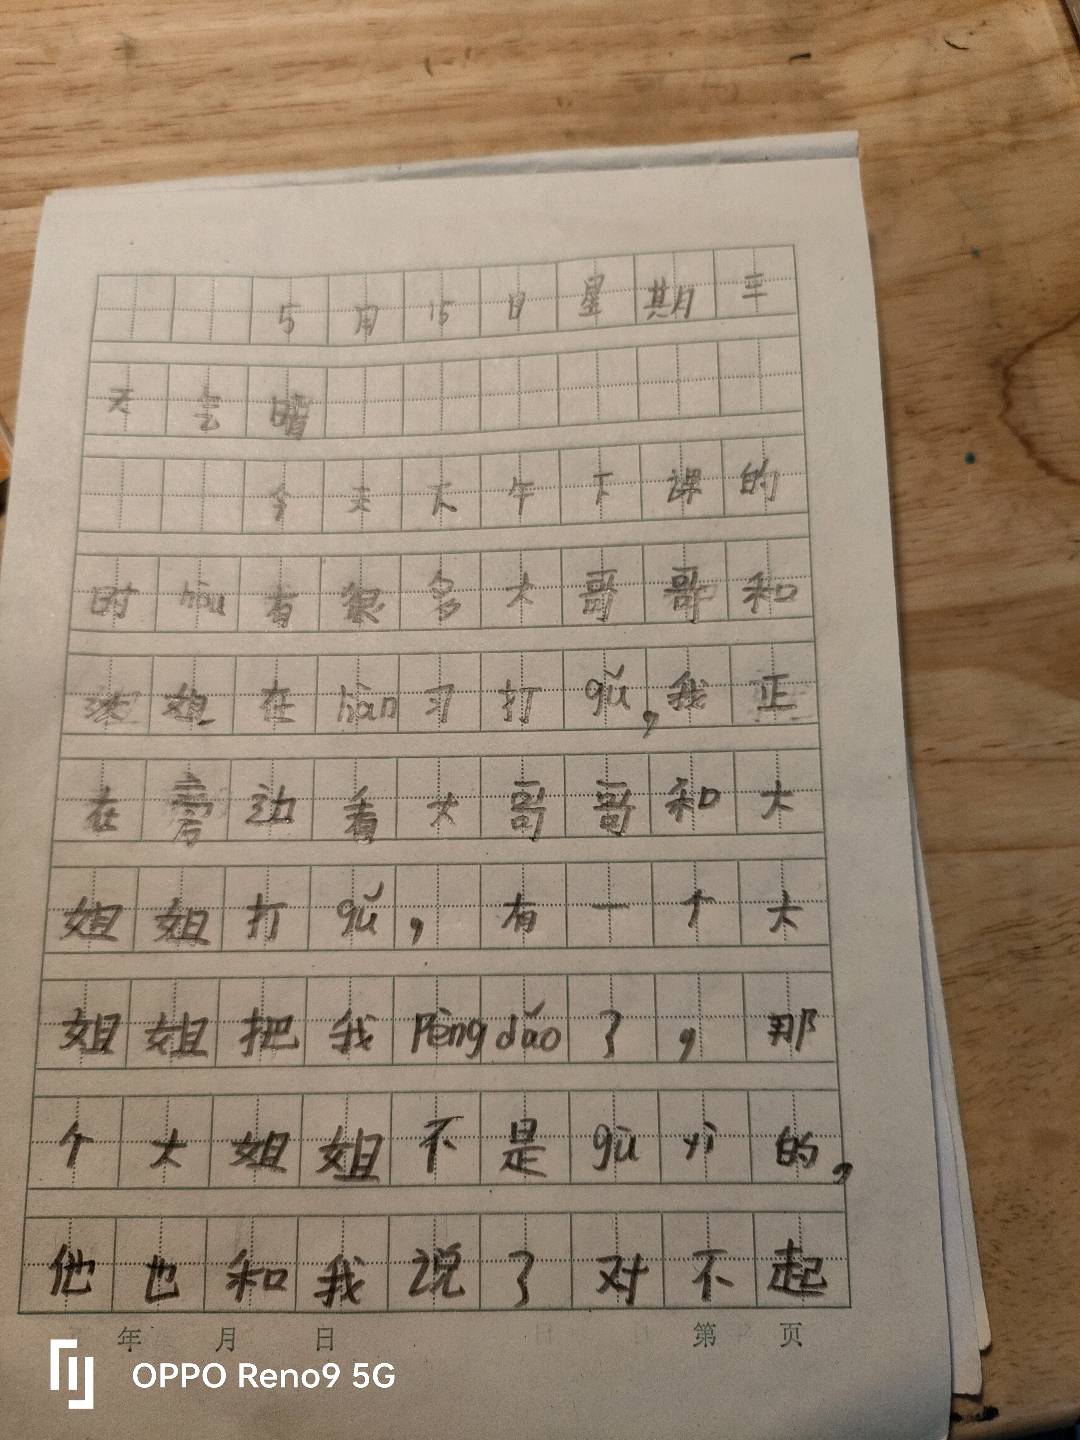 5月15日星期三
天气晴
今天下午下课的
时hòu有很多大哥哥和
姐在hàn习打gǔ,我正
在旁边看大哥哥和大
姐姐打gǔ,有一个大
姐姐把我Pèng dǎo了,那
个大姐姐不是gù yì的,
他也和我说了对不起
年 月 日 第 页
OPPO Reno9 5G